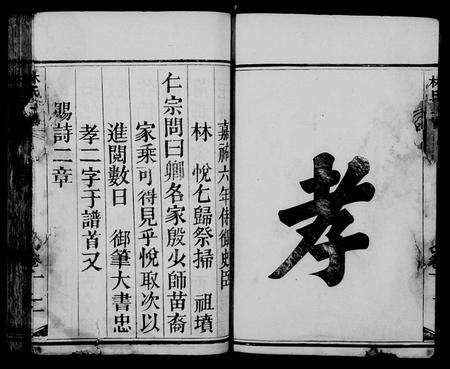 孝
嘉祐六年侍御史臣
林 悅乞歸祭掃 祖墳
仁宗問曰卿各家殷少師苗裔
家乘可得見乎悅取次以
進閱數日 御筆大書忠
孝二字于譜首又
賜詩二章
林氏